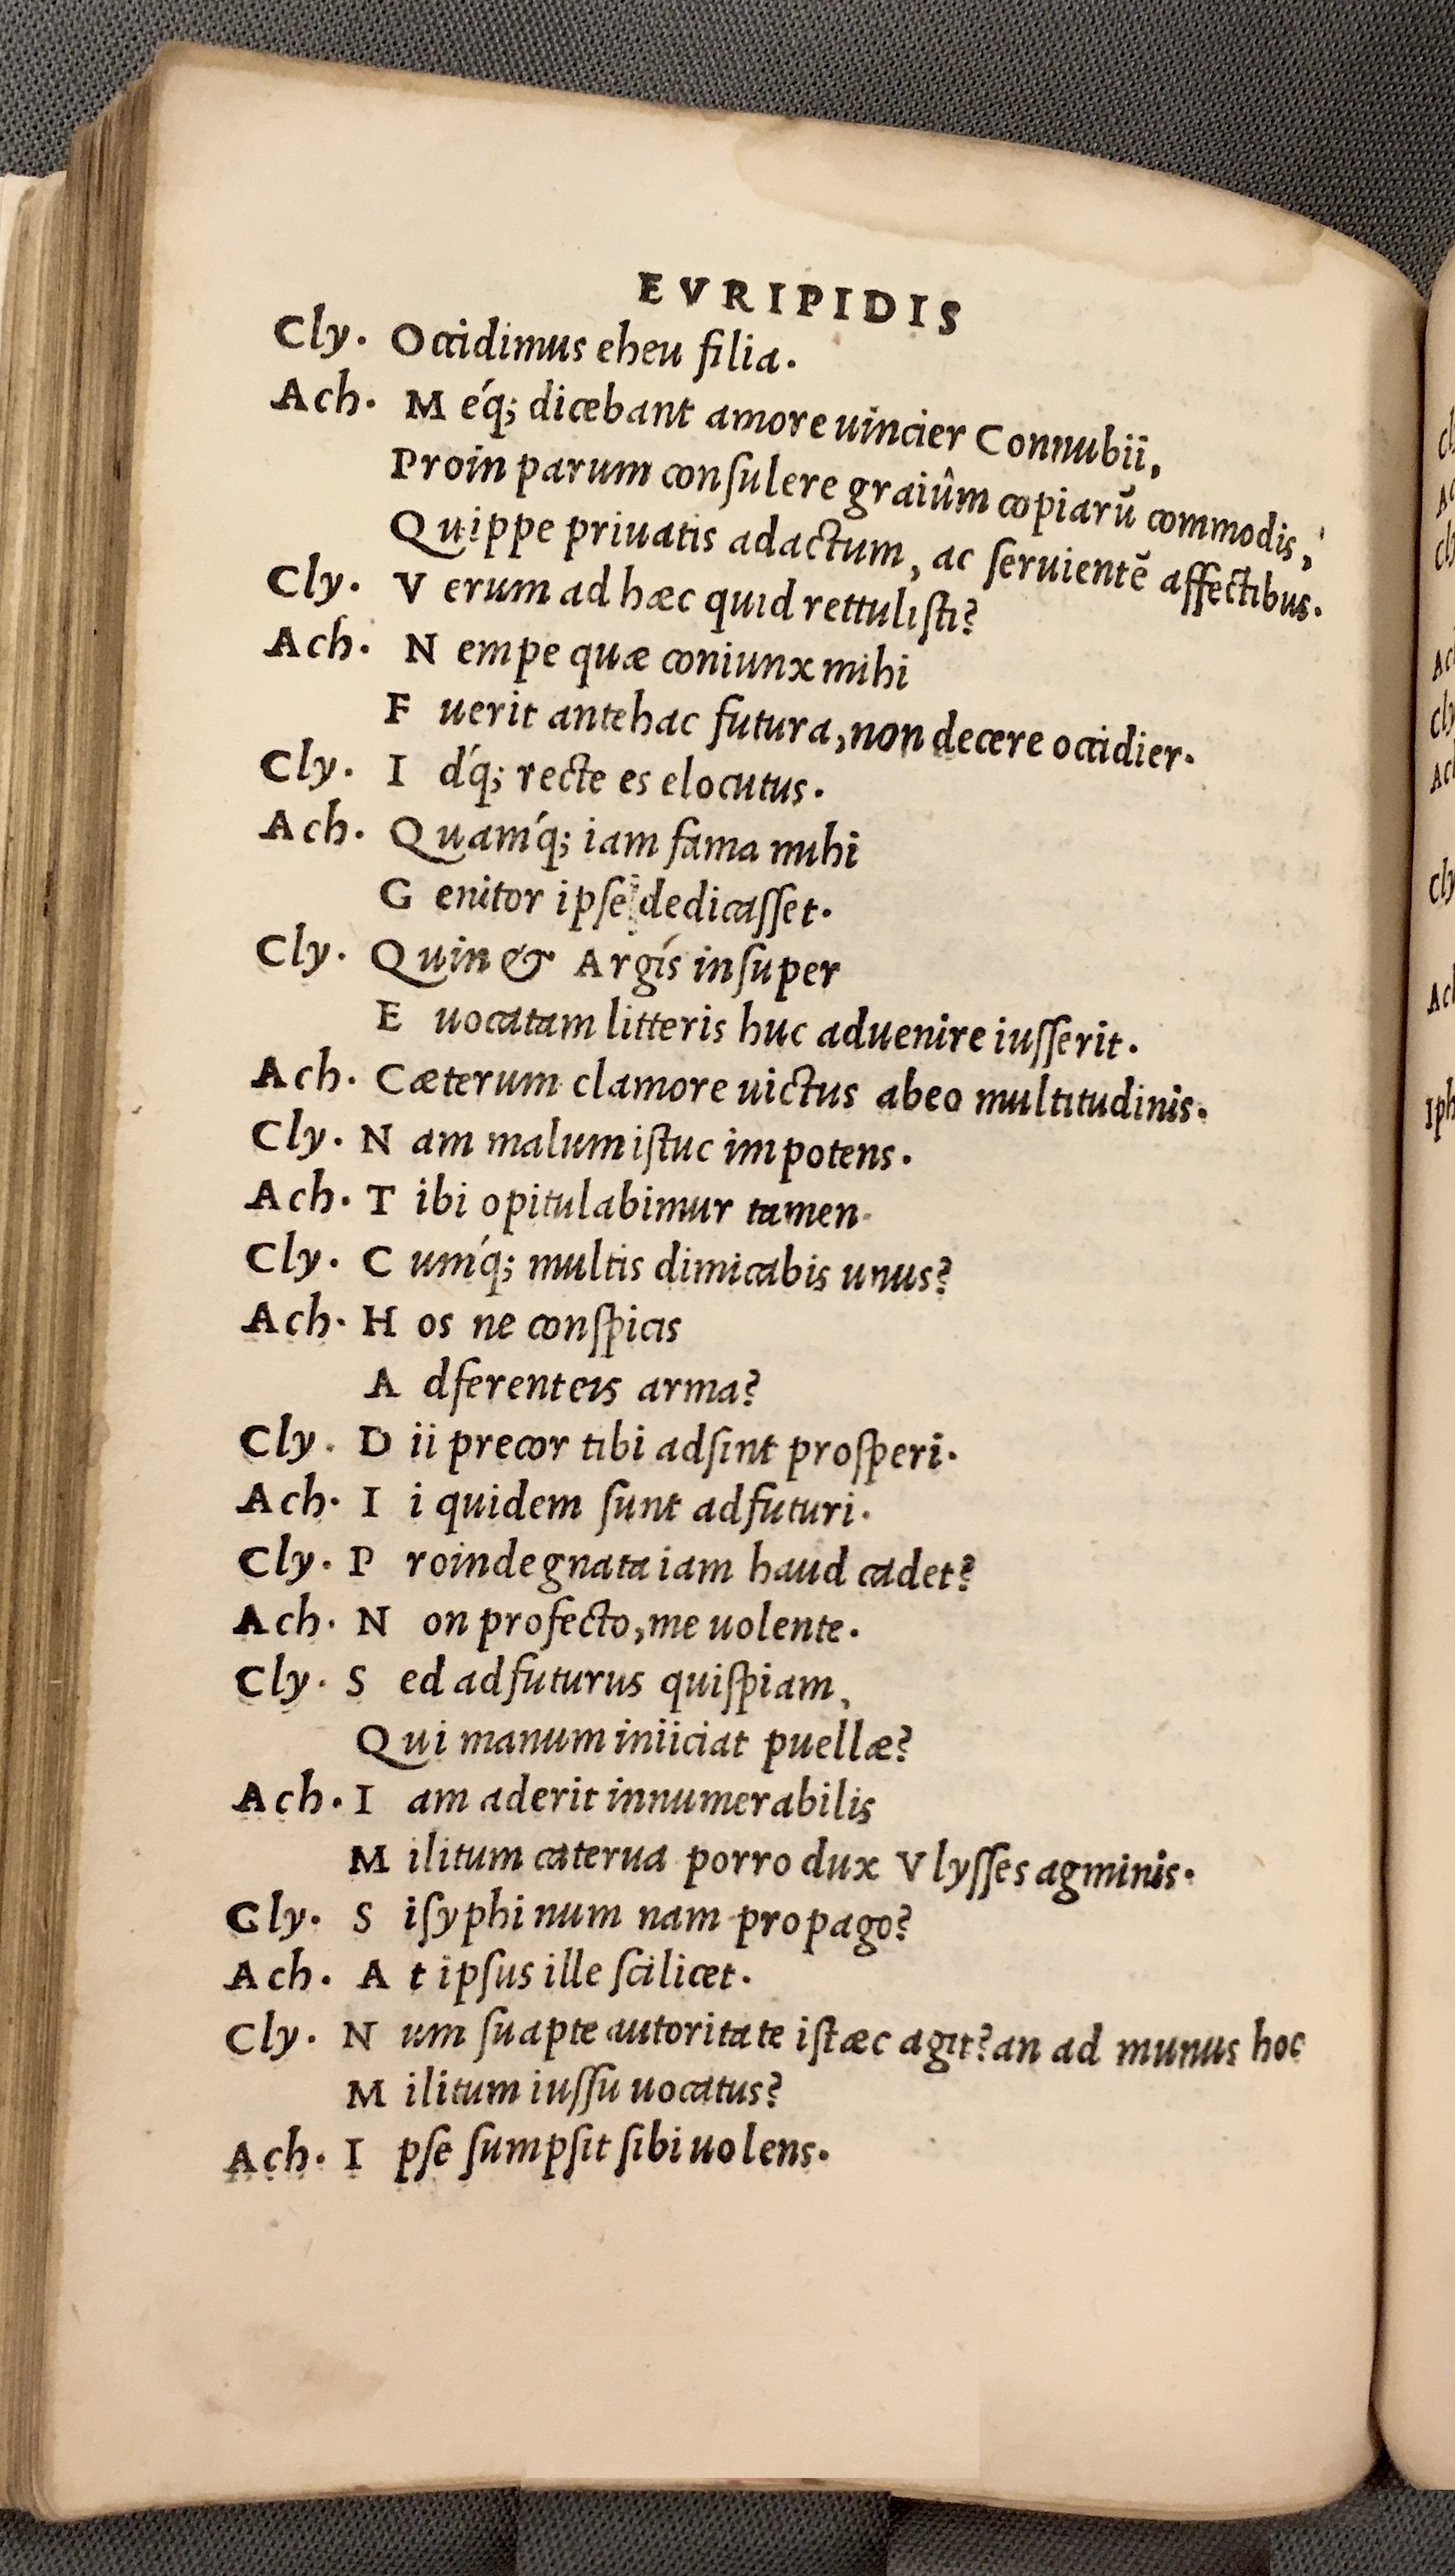 EVRIPIDIS
Cly. Occidimus eheu filia.
Ach. M éq; dicebant amore uincier Connubii,
Proin parum conſulere graiûm copiarũ commodis,
Quippe priuatis adactum, ac ſeruientẽ affectibus.
Cly. V erum ad hæc quid rettuliſti?
Ach. N empe quæ coniunx mihi
F uerit antehac futura, non decere occidier.
Cly. I d́q; recte es elocutus.
Ach. Quaḿq; iam fama mihi
G enitor ipſe dedicaſſet.
Cly. Quin & Argís inſuper
E uocatam litteris huc aduenire iuſſerit.
Ach. Cæterum clamore uictus abeo multitudinis.
Cly. N am malum iſtuc impotens.
Ach. T ibi opitulabimur tamen.
Cly. C uḿq; multis dimicabis unus?
Ach. H os ne conſpicis
A dferenteis arma?
Cly. D ii precor tibi adſint proſperi.
Ach. I i quidem ſunt adfuturi.
Cly. P roinde gnata iam haud cadet?
Ach. N on profecto, me uolente.
Cly. S ed adfuturus quiſpiam,
Qui manum iniiciat puellæ?
Ach. I am aderit innumerabilis
M ilitum caterua porro dux Vlyſſes agminis.
Cly. S iſyphi num nam propago?
Ach. A t ipſus ille ſcilicet.
Cly. N um ſuapte autoritate iſtæc agit? an ad munus hoc
M ilitum iuſſu uocatus?
Ach. I pſe ſumpſit ſibi uolens.